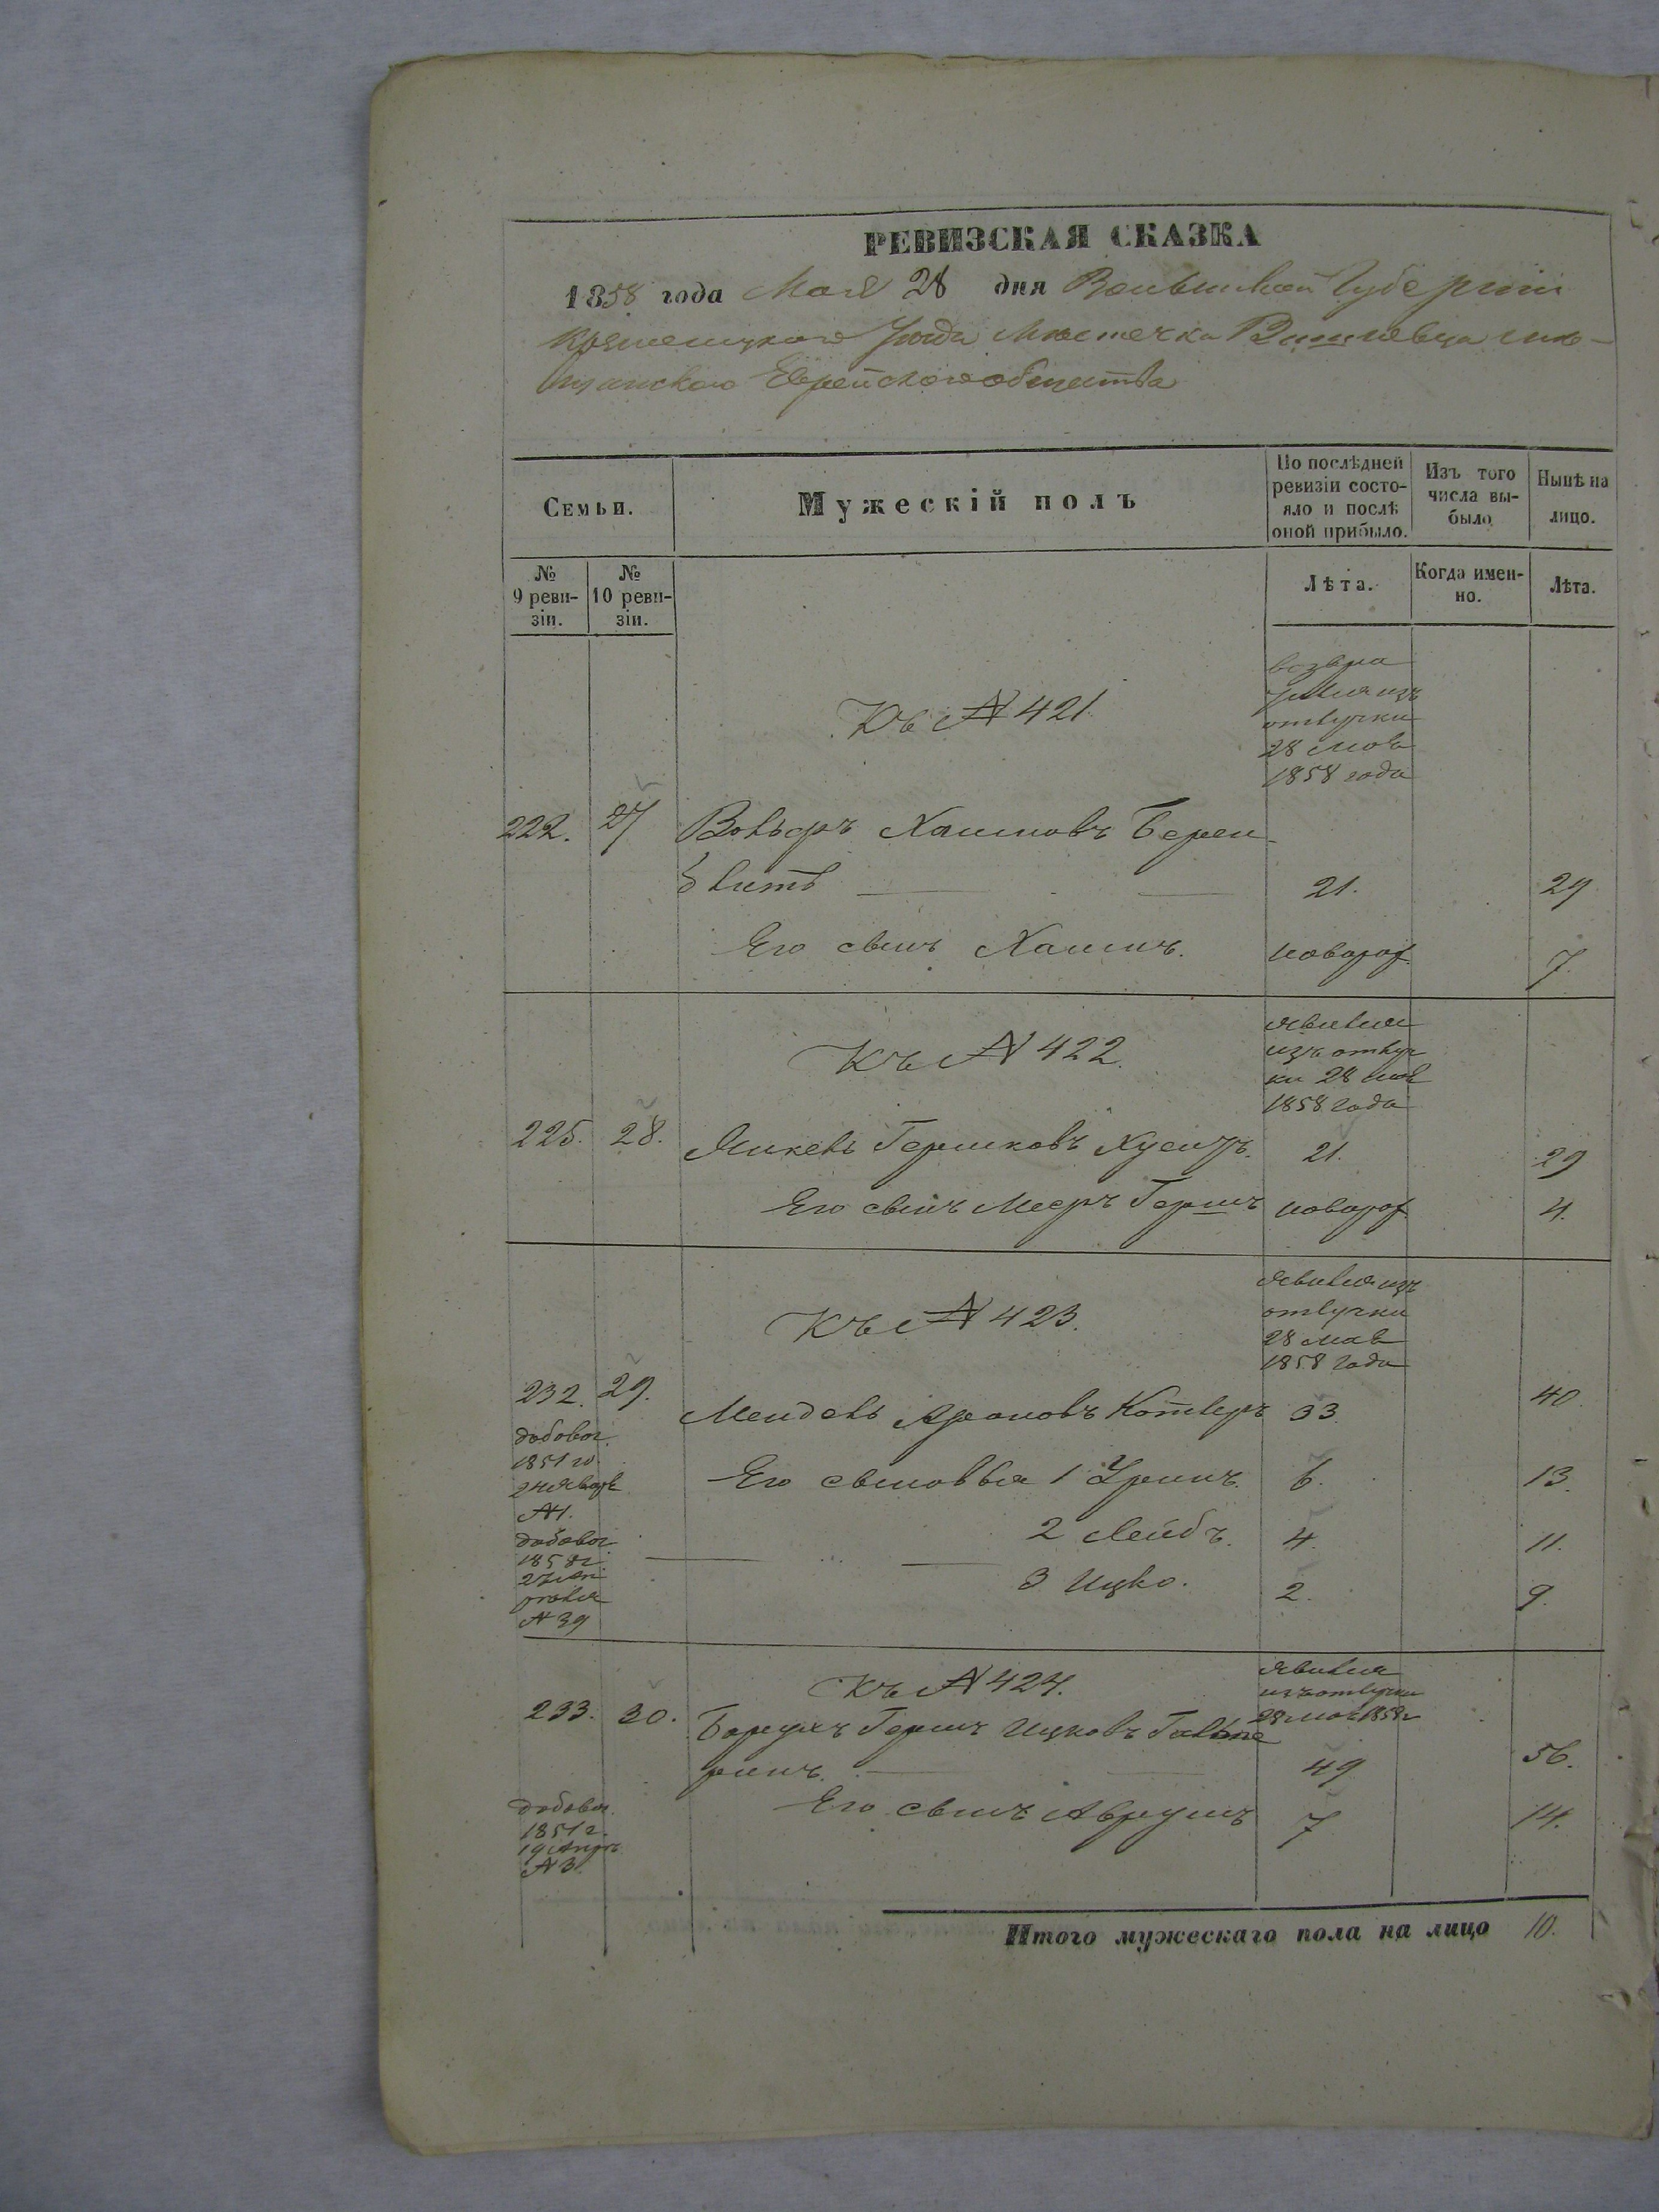 РЕВИЗСКАЯ СКАЗКА
1858 года Мая 28 дня Волынской Губернiи
Кременецкого Уѣзда Мѣстечка Вишневца мѣ-
щанского Еврейского общества
Семьи.
Мужескій полъ
По послѣдней ревизіи состо-яло и послѣ оной прибыло.
Изъ того числа вы-было
Нынѣ на лицо.
№ 9 реви-зіи.
№ 10 реви-зіи.
Лѣта.
Когда имен-но.
Лѣта.
Къ № 421.
отлучки
28 мая
1858 года
222. 27 Вольфъ Хаимовъ Берен
блитъ 21. 29
Его сынъ Хаимъ. новорож. 7.
Къ № 422.
явился
изъ отлуч
ки 28 мая
1858 года
225. 28. Янкель Гершковъ 21. 29
Его сынъ Мееръ Гершъ новорож. 4.
Къ № 423.
явился изъ
отлучки
28 мая
1858 года
232. 29. Мендель Ароновъ Котляръ 33. 40
добавоч.
1851 го
24 января
№ 1.
Его сыновья 1 6. 13.
2 Лейбъ. 4. 11.
3 Ицко. 2. 9.
добавоч.
1858 г.
№ 39
Къ № 424.
явился
изъ отлучки
28 мая 1858 г
233. 30. Борухъ Гершъ Ицковъ Гальпе
ринъ. 49 56.
Его сынъ Аврумъ 7 14.
добавоч.
1851 г.
№ 3.
Итого мужескаго пола на лицо 10.